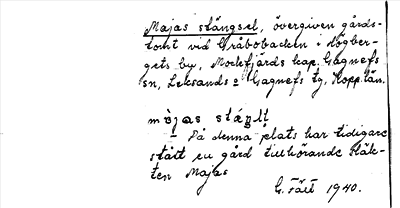 Majas stängsel, övergiven gårds-
tomt vid Gråbobacken i Högber-
gets by, Mockfjärds kap. Gagnefs
sn, Leksands o Gagnefs tg, Kopp. län.
mòjas stáŋḷ
På denna plats har tidigare
stått en gård tillhörande släk-
ten Majas
G. Täll 1940.